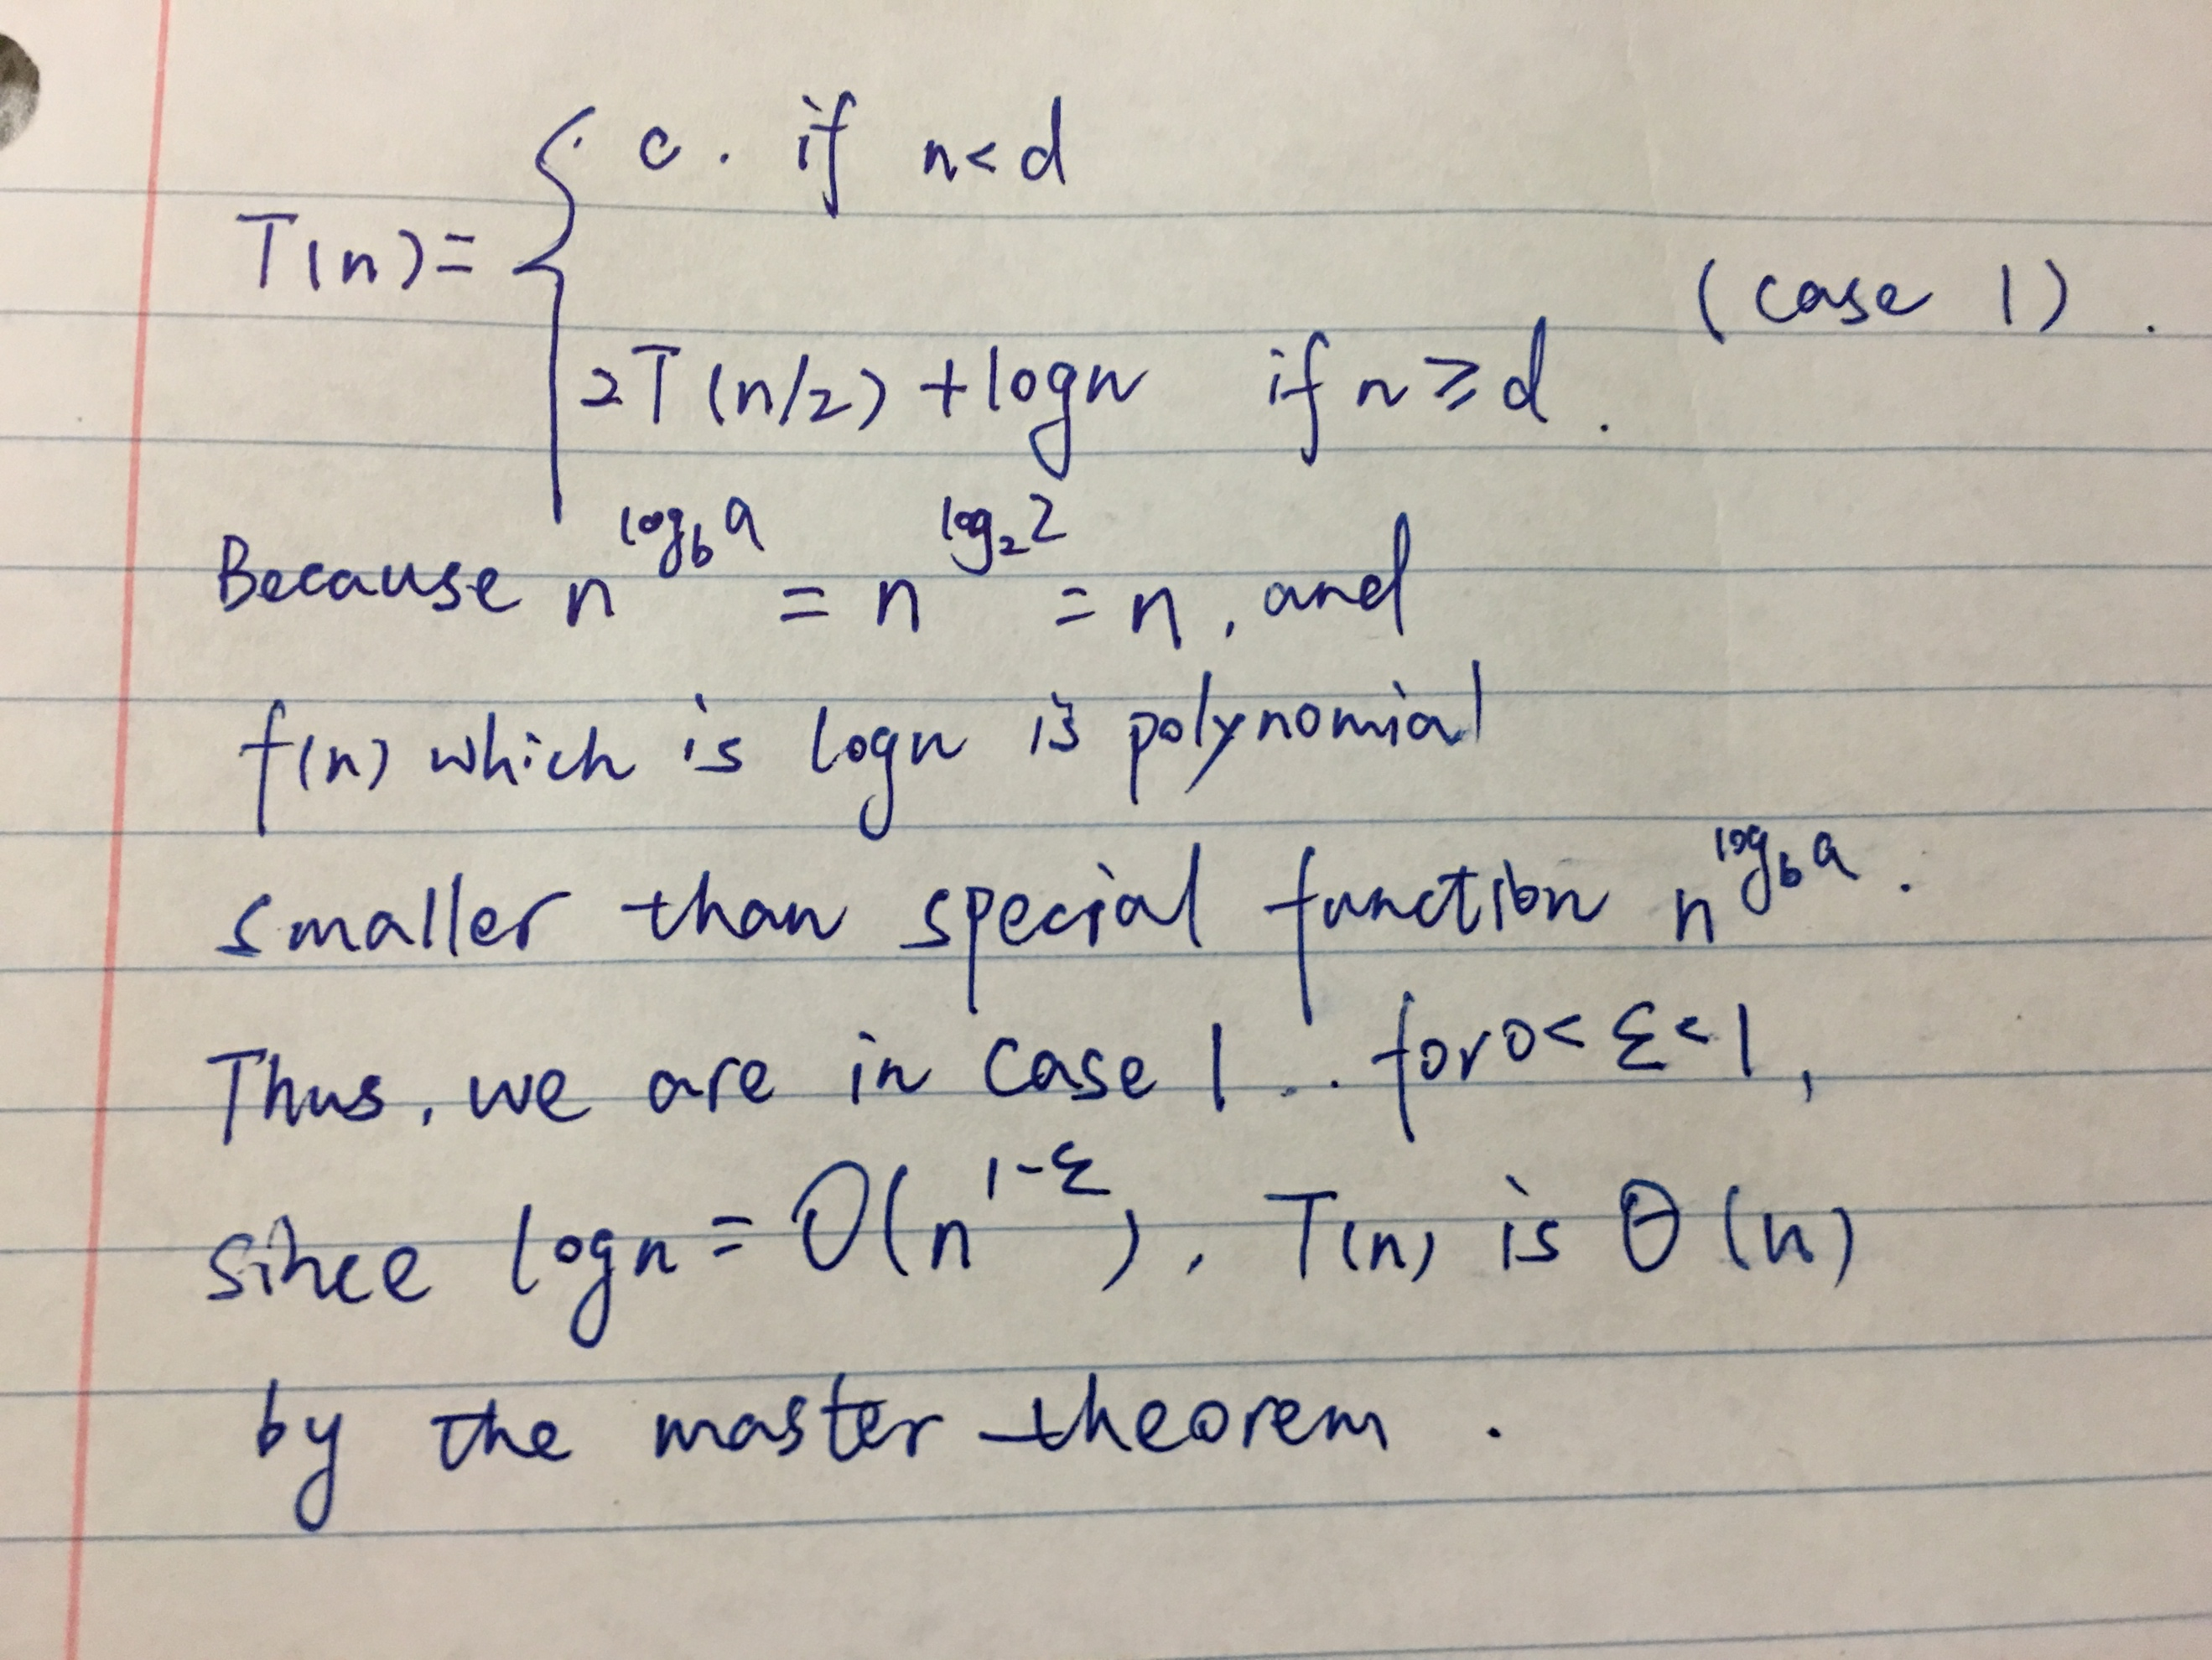 c. if n<d
T(n)= {
(case 1).
2T(n/2) +logn if n≥d.
Because n^log_b a = n^log_2 2 = n, and
f(n) which is logn is polynomial
smaller than special function n^log_b a.
Thus, we are in case 1.. for 0<ε<1,
since logn = O(n^1-ε), T(n) is Θ(n)
by the master theorem.